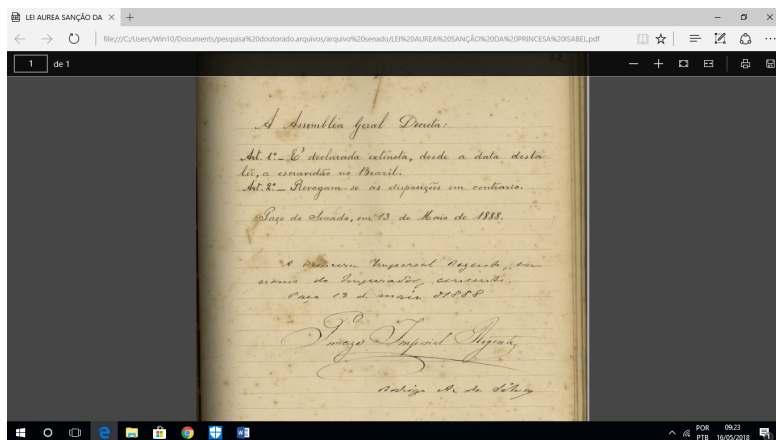 LEI AUREA SANÇÃO DA
file:///C:/Users/Win10/Documents/pesquisa%20doutorado.arquivos/arquivo%20senado/LEI%20AUREA%20SANÇÃO%20DA%20PRINCESA%20ISABEL.pdf
1 de 1
32
A Assemblêa Geral Decreta:
Art. 1º_ E' declarada extincta, desde a data desta
lei, a escravidão no Brazil.
Art. 2º_ Revogam se as disposições em contrario.
Paço do Senado, em 13 de Maio de 1888.
A Princesa Imperial Regente, em
nome do Imperador, consente.
Paço 13 de maio d1888
Princeza Imperial Regente
Rodrigo A. da Silva
POR 09:23
PTB 16/05/2018